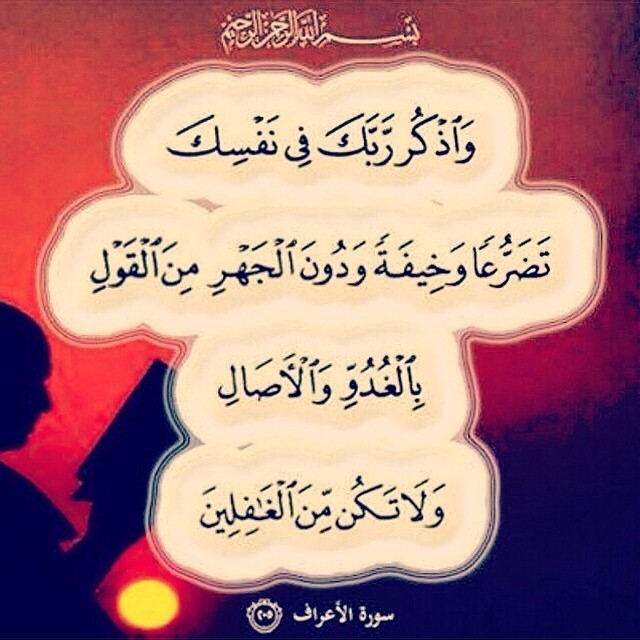 بِسْمِ اللَّهِ الرَّحْمَٰنِ الرَّحِيمِ
وَٱذْكُر رَّبَّكَ فِى نَفْسِكَ
تَضَرُّعًا وَخِيفَةً وَدُونَ ٱلْجَهْرِ مِنَ ٱلْقَوْلِ
بِٱلْغُدُوِّ وَٱلْأَصَالِ
وَلَا تَكُن مِّنَ ٱلْغَٰفِلِينَ
سورة الأعراف ٢٠٥